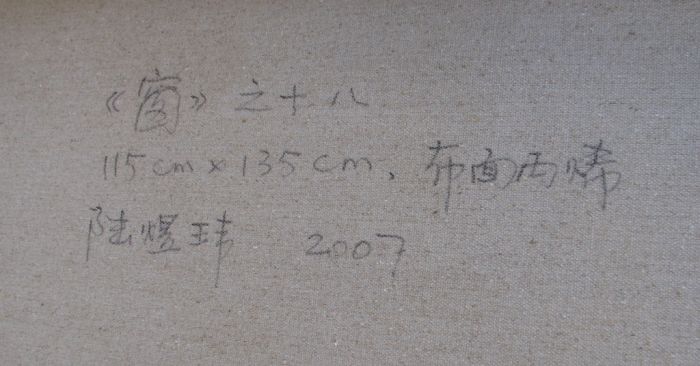 《窗》之十八
115cm x 135cm、布面丙烯
陆煜玮 2007